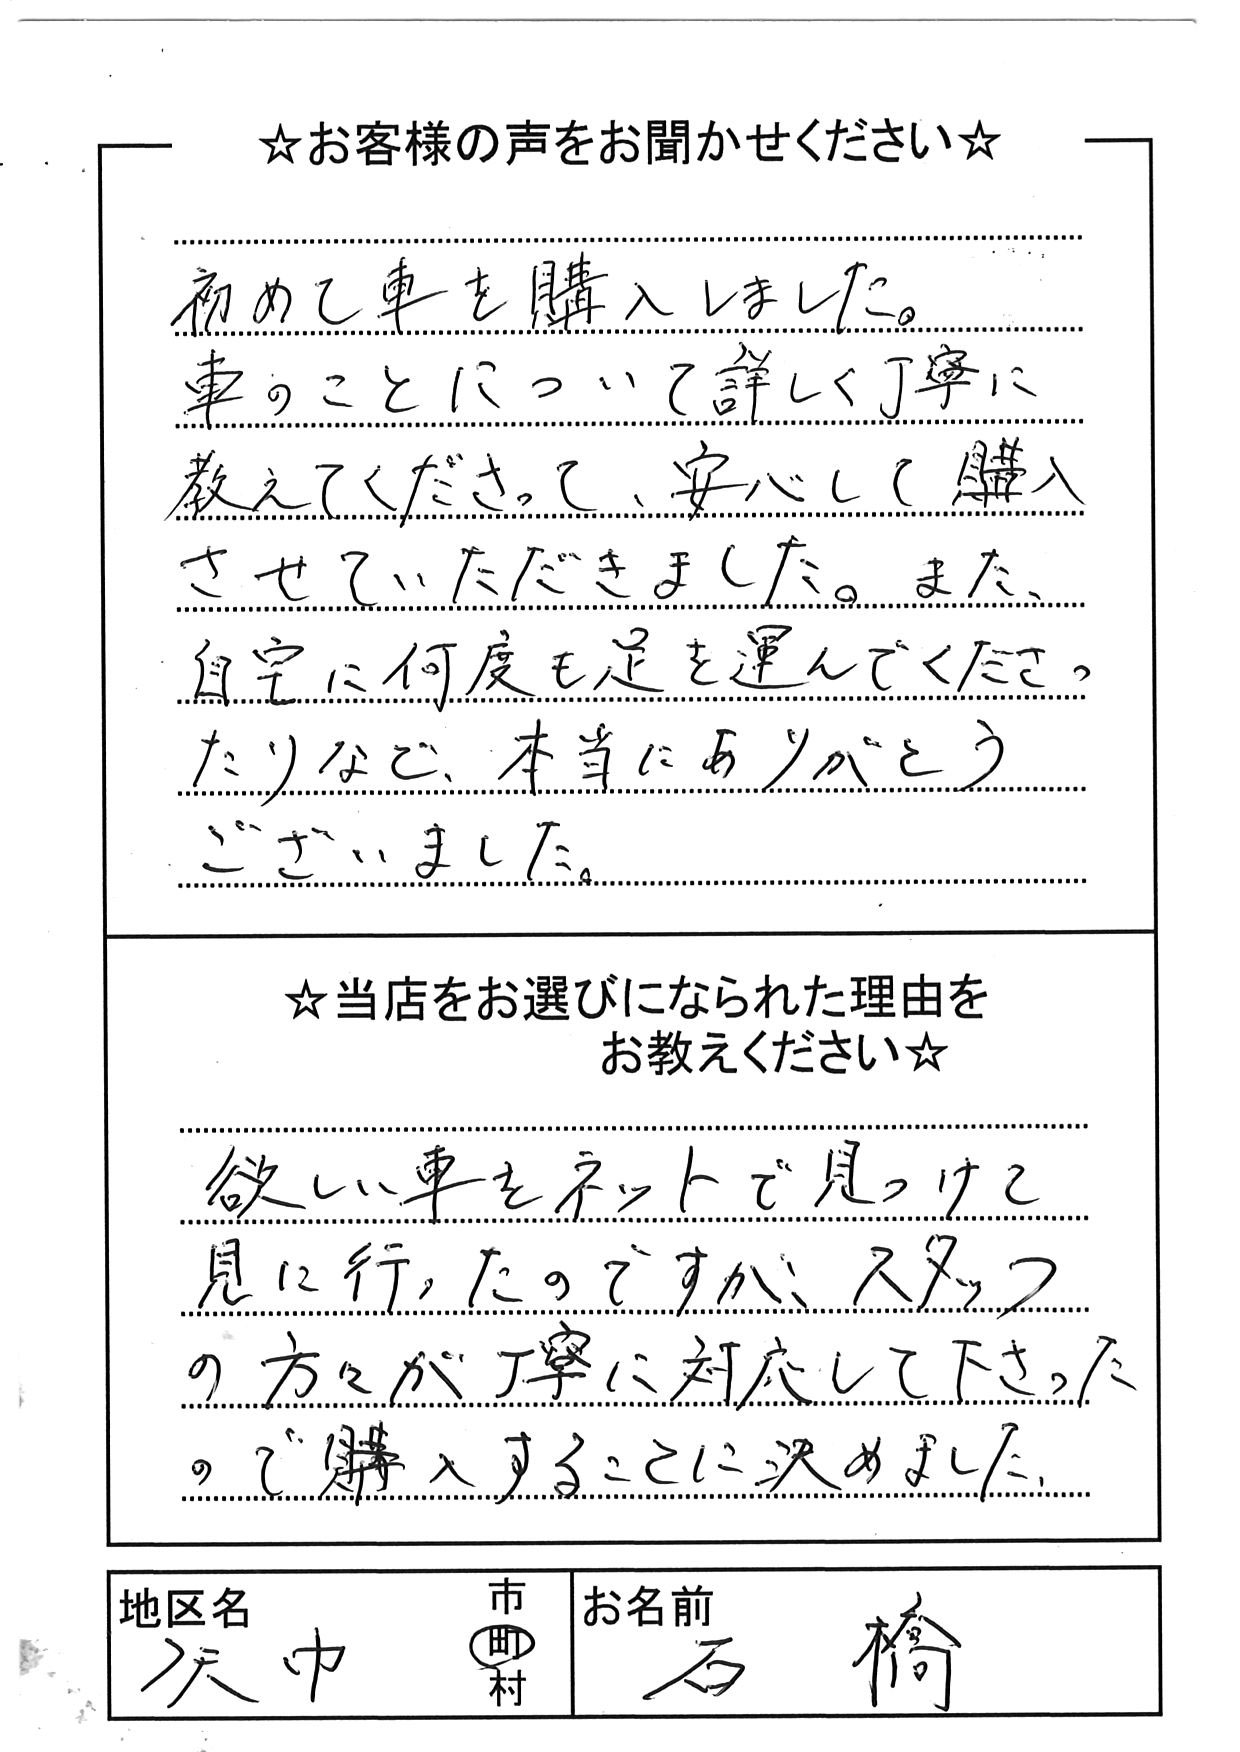 ☆お客様の声をお聞かせください☆
初めて車を購入しました。
車のことについて詳しく丁寧に
教えてくださって、安心して購入
させていただきました。また、
自宅に何度も足を運んでくださっ
たりなど、本当にありがとう
ございました。
☆当店をお選びになられた理由を
お教えください☆
欲しい車をネットで見つけて
見に行ったのですが、スタッフ
の方々が丁寧に対応して下さった
ので購入することに決めました、
地区名
矢巾
市
町
村
お名前
石橋